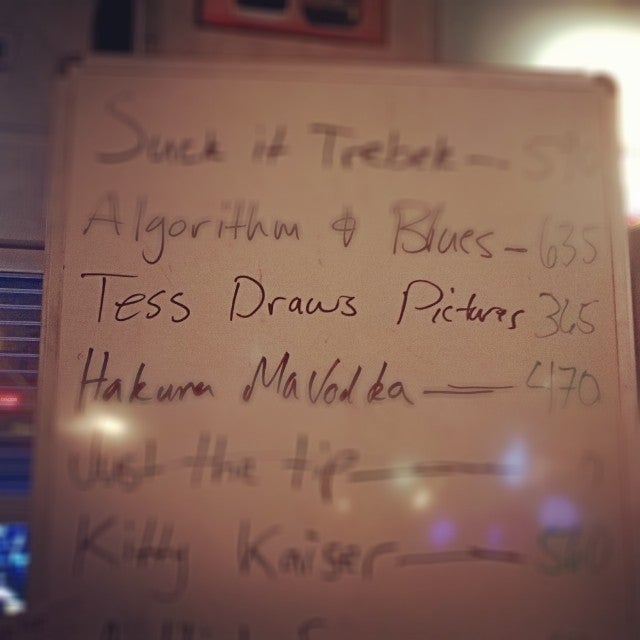 Suck it Trebek —
Algorithm & Blues – 635
Tess Draws Pictures 365
Hakuna MaVodka — 470
Just the tip —
Kitty Kaiser — 560